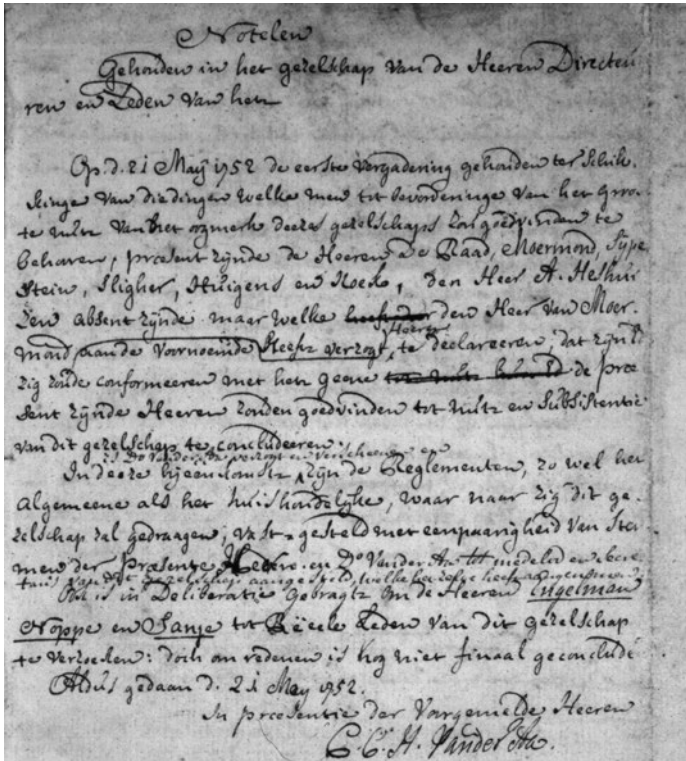 Notelen
Gehouden in het gezelschap van de Heeren Directeu
ren en Leden van het
Op d. 21 Maÿ 1752 de eerste vergadering gehouden ter Schik
kinge van die dingen welke men tot bevorderinge van het groo
te nutt van het ogmerk deezes gezelschaps zal goedvinden te
behoren, præsent zÿnde de Heeren de Raad, Moermond, Sÿpe
stein, Sligher, Huigens en Koek, den Heer A.
absent zÿnde maar welke den Heer van Moer
mond, aan de voornoemde Heeren verzogt te declareeren, dat zÿn Ed
zig zoude conformeeren met het geene de præ
sent zÿnde Heeren zouden goedvinden tot nutt en Subsistentie
van dit gezelschap te concludeeren.
is Do van der verzogt en verscheenen en
In deeze bÿeenkomst zÿn de Reglementen, zo wel het
Algemeene als het huishoudelÿke, waar naar zig dit ge
zelschap zal gedraagen, vast gesteld met eenpaarigheid van Stem
men der Præsente Heeren en Do Vander Aa tot medelid en secre
taris van dit gezelschap aangesteld, welke het zelve heeft aangenomen
Ook is in Deliberatie gebragt om de Heeren Engelman
Noppe en Sanje tot Leden van dit gezelschap
te verzoeken: doch om redenen is nog niet finaal geconclude
Aldus gedaan d. 21 May 1752.
In præsentie der Voorgemelde Heeren
C. C. H. Vander Aa.